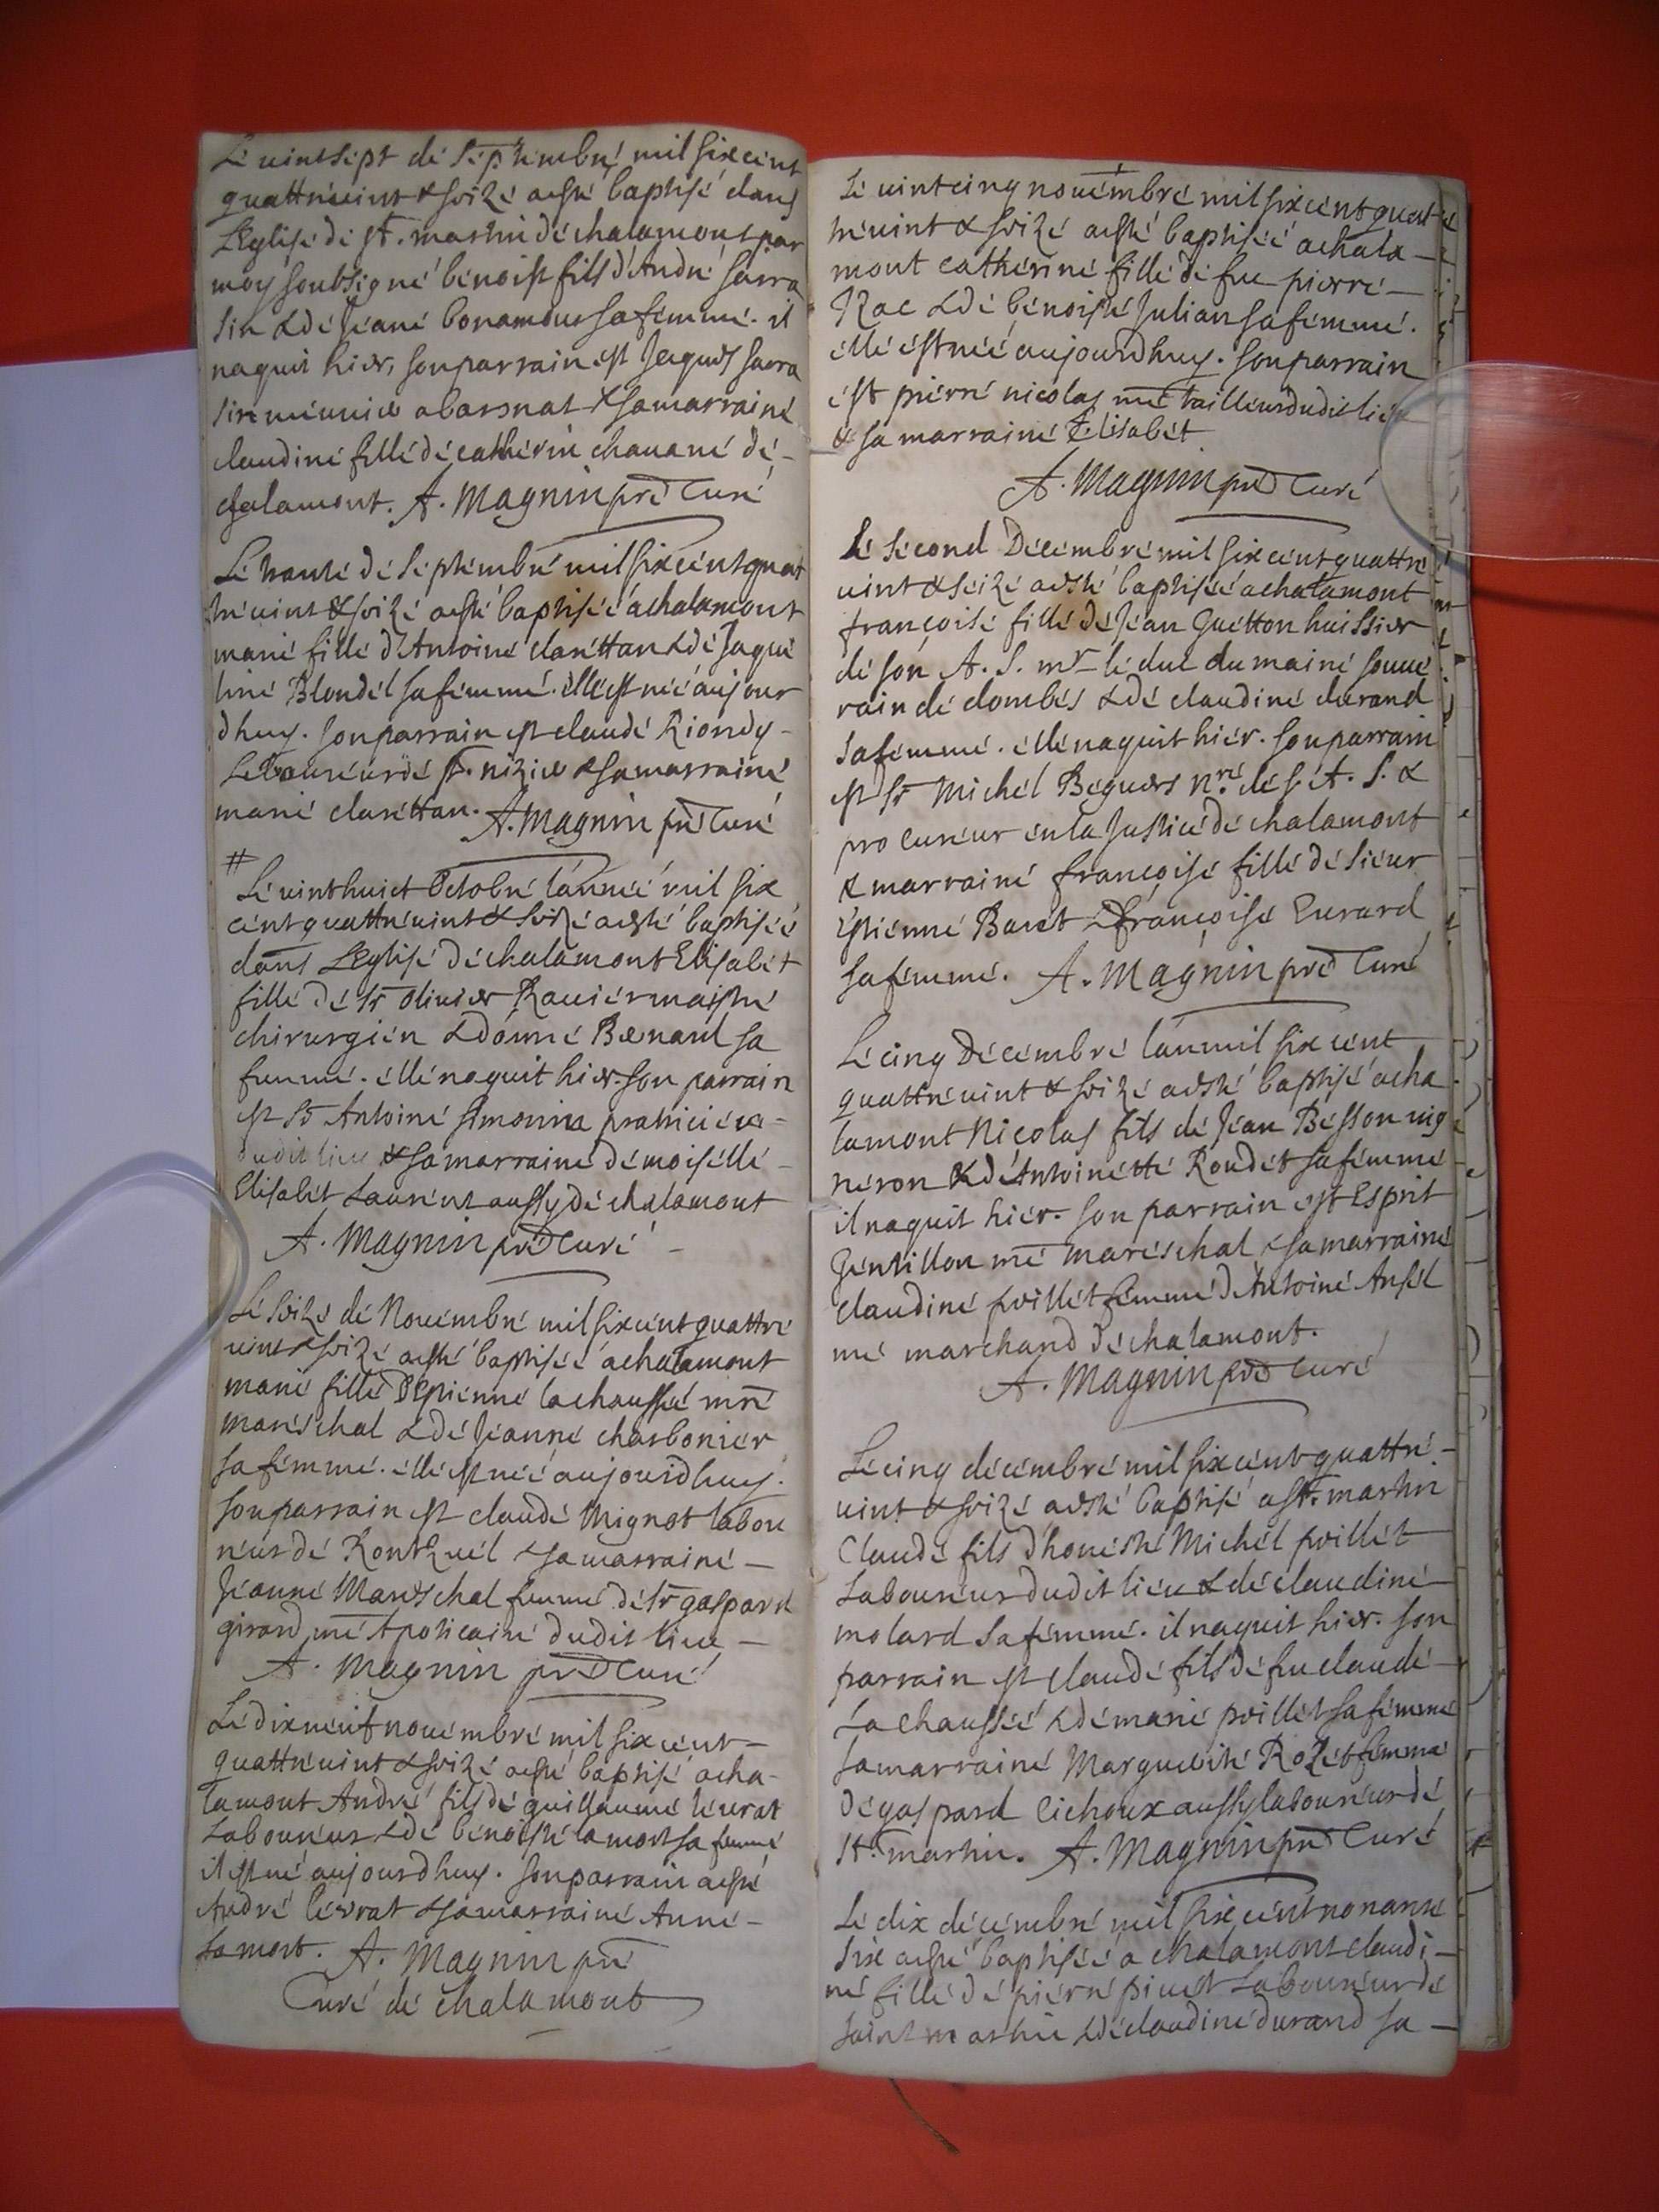 Le vintsept de Septembre mil six cent
quattrevint & seize a esté baptisé dans
l'Eglise de st. martin de chalamont par
moy soubsigné benoist fils d'André sarra
sin & de Jeane bonamour sa femme. il
naquit hier, son parrain est Jaques sarra
sin meunier a barsnat & sa marraine
claudine fille de catherin chavane de -
chalamont. A. Magnin pre Curé
Le trante de septembre mil six cent quat
trevint & seize a esté baptisée a chalamont
marie fille d'Antoine clarettan & de Jaque
line Blondel sa femme. elle est née aujour
dhuy. son parrain est claude Riondy -
Laboureur de st. nizier & sa marraine
marie clarettan. A. Magnin pre Curé
#
Le vinthuict Octobre l'année mil six
cent quattrevint & seize a esté baptisée
dans L'Eglise de chalamont Elisabet
fille de sr Olivier Ravier maistre
chirurgien & d'anne Bernard sa
femme. elle naquit hier. son parrain
est sr Antoine simonin pratticien -
dudit lieu & sa marraine demoiselle -
Elisabet Laurent aussy de chalamont
A. Magnin pre Curé -
Le seize de Novembre mil six cent quattre
vint & seize a esté baptisée a chalamont
marie fille d'Estienne lachaussée mre
mareschal & de Jeanne charbonier
sa femme. elle est née aujourdhuy.
son parrain est claude Mignot labou
reur de Rontzuel & sa marraine -
Jeanne Mareschal femme de sr gaspard
girard me Apoticaire dudit lieu -
A. Magnin pre Curé
Le dixneuf novembre mil six cent -
quattrevint & seize a esté baptisé a cha-
lamont André fils de guillaume levrat
Laboureur & de benoiste lamort sa femme
il est né aujourdhuy. son parrain a esté
André levrat & sa marraine Anne -
lamort. A. Magnin pre
Curé de chalamont
Le vintcinq novembre mil six cent quat
trevint & seize a esté baptisée a chala -
mont catherine fille de feu pierre -
Rac & de benoiste Julian sa femme.
elle est née aujourdhuy. son parrain
est pierre nicolas me tailleur dudit lieu
& sa marraine Elisabet
A. Magnin pre Curé
Le second Decembre mil six cent quattre
vint & seize a esté baptisée a chalamont
françoise fille de Jean Guetton huissier
de son A. S. mr le duc du maine souve
rain de dombes & de claudine durand
sa femme. elle naquit hier. son parrain
est sr Michel Beguers nre de s. A. S. &
procureur en la Justice de chalamont
& marraine françoise fille de sieur
Estienne Baret & françoise Evrard
sa femme. A. Magnin pre Curé
Le cinq Decembre l'an mil six cent
quattrevint & seize a esté baptisé a cha
lamont Nicolas fils de Jean Besson vig
neron & de Antoinette Roudet sa femme
il naquit hier. son parrain est Esprit
Gentillon me mareschal & sa marraine
claudine poillet femme d'Antoine Ansel
me marchand de chalamont.
A. Magnin pre Curé
Le cinq decembre mil six cent quattre -
vint & seize a esté baptisé a st. martin
Claude fils d'honeste Michel poillet
Laboureur dudit lieu & de claudine
molard sa femme. il naquit hier. son
parrain est claude fils de feu claude -
La chaussée & de marie poillet sa femme
sa marraine Marguerite Rozet femme
de gaspard Cichoux aussy laboureur de
st. martin. A. Magnin pre Curé
Le dix decembre mil six cent nonante
six a esté baptisée a chalamont claudi -
ne fille de pierre pivet Laboureur de
saint martin & de claudine durand sa -